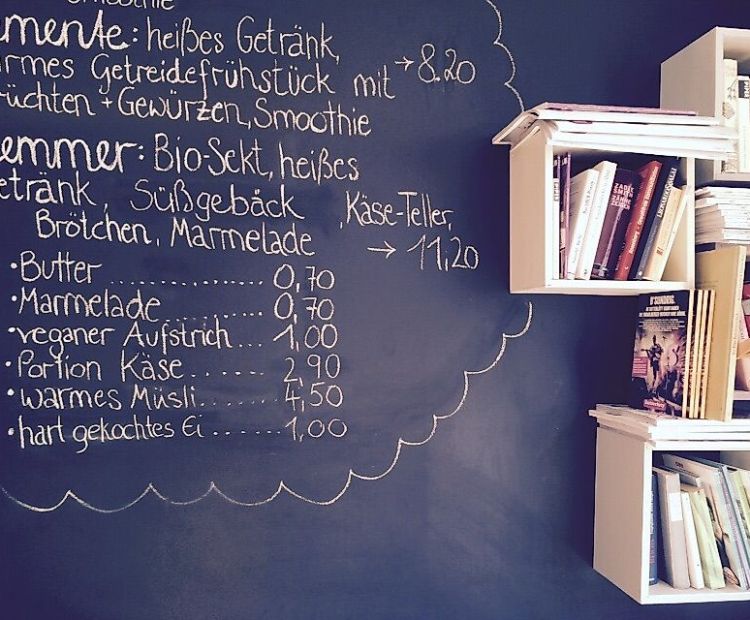 Smoothie
emente: heißes Getränk,
armes Getreidefrühstück mit → 8.20
rüchten + Gewürzen, Smoothie
emmer: Bio-Sekt, heißes
etränk, Süßgebäck, Käse-Teller,
Brötchen, Marmelade → 11,20
• Butter .............. 0,70
• Marmelade .......... 0,70
• veganer Aufstrich... 1,00
• Portion Käse....... 2,90
• warmes Müsli....... 4,50
• hart gekochtes Ei ...... 1,00
ZADIE SMITH